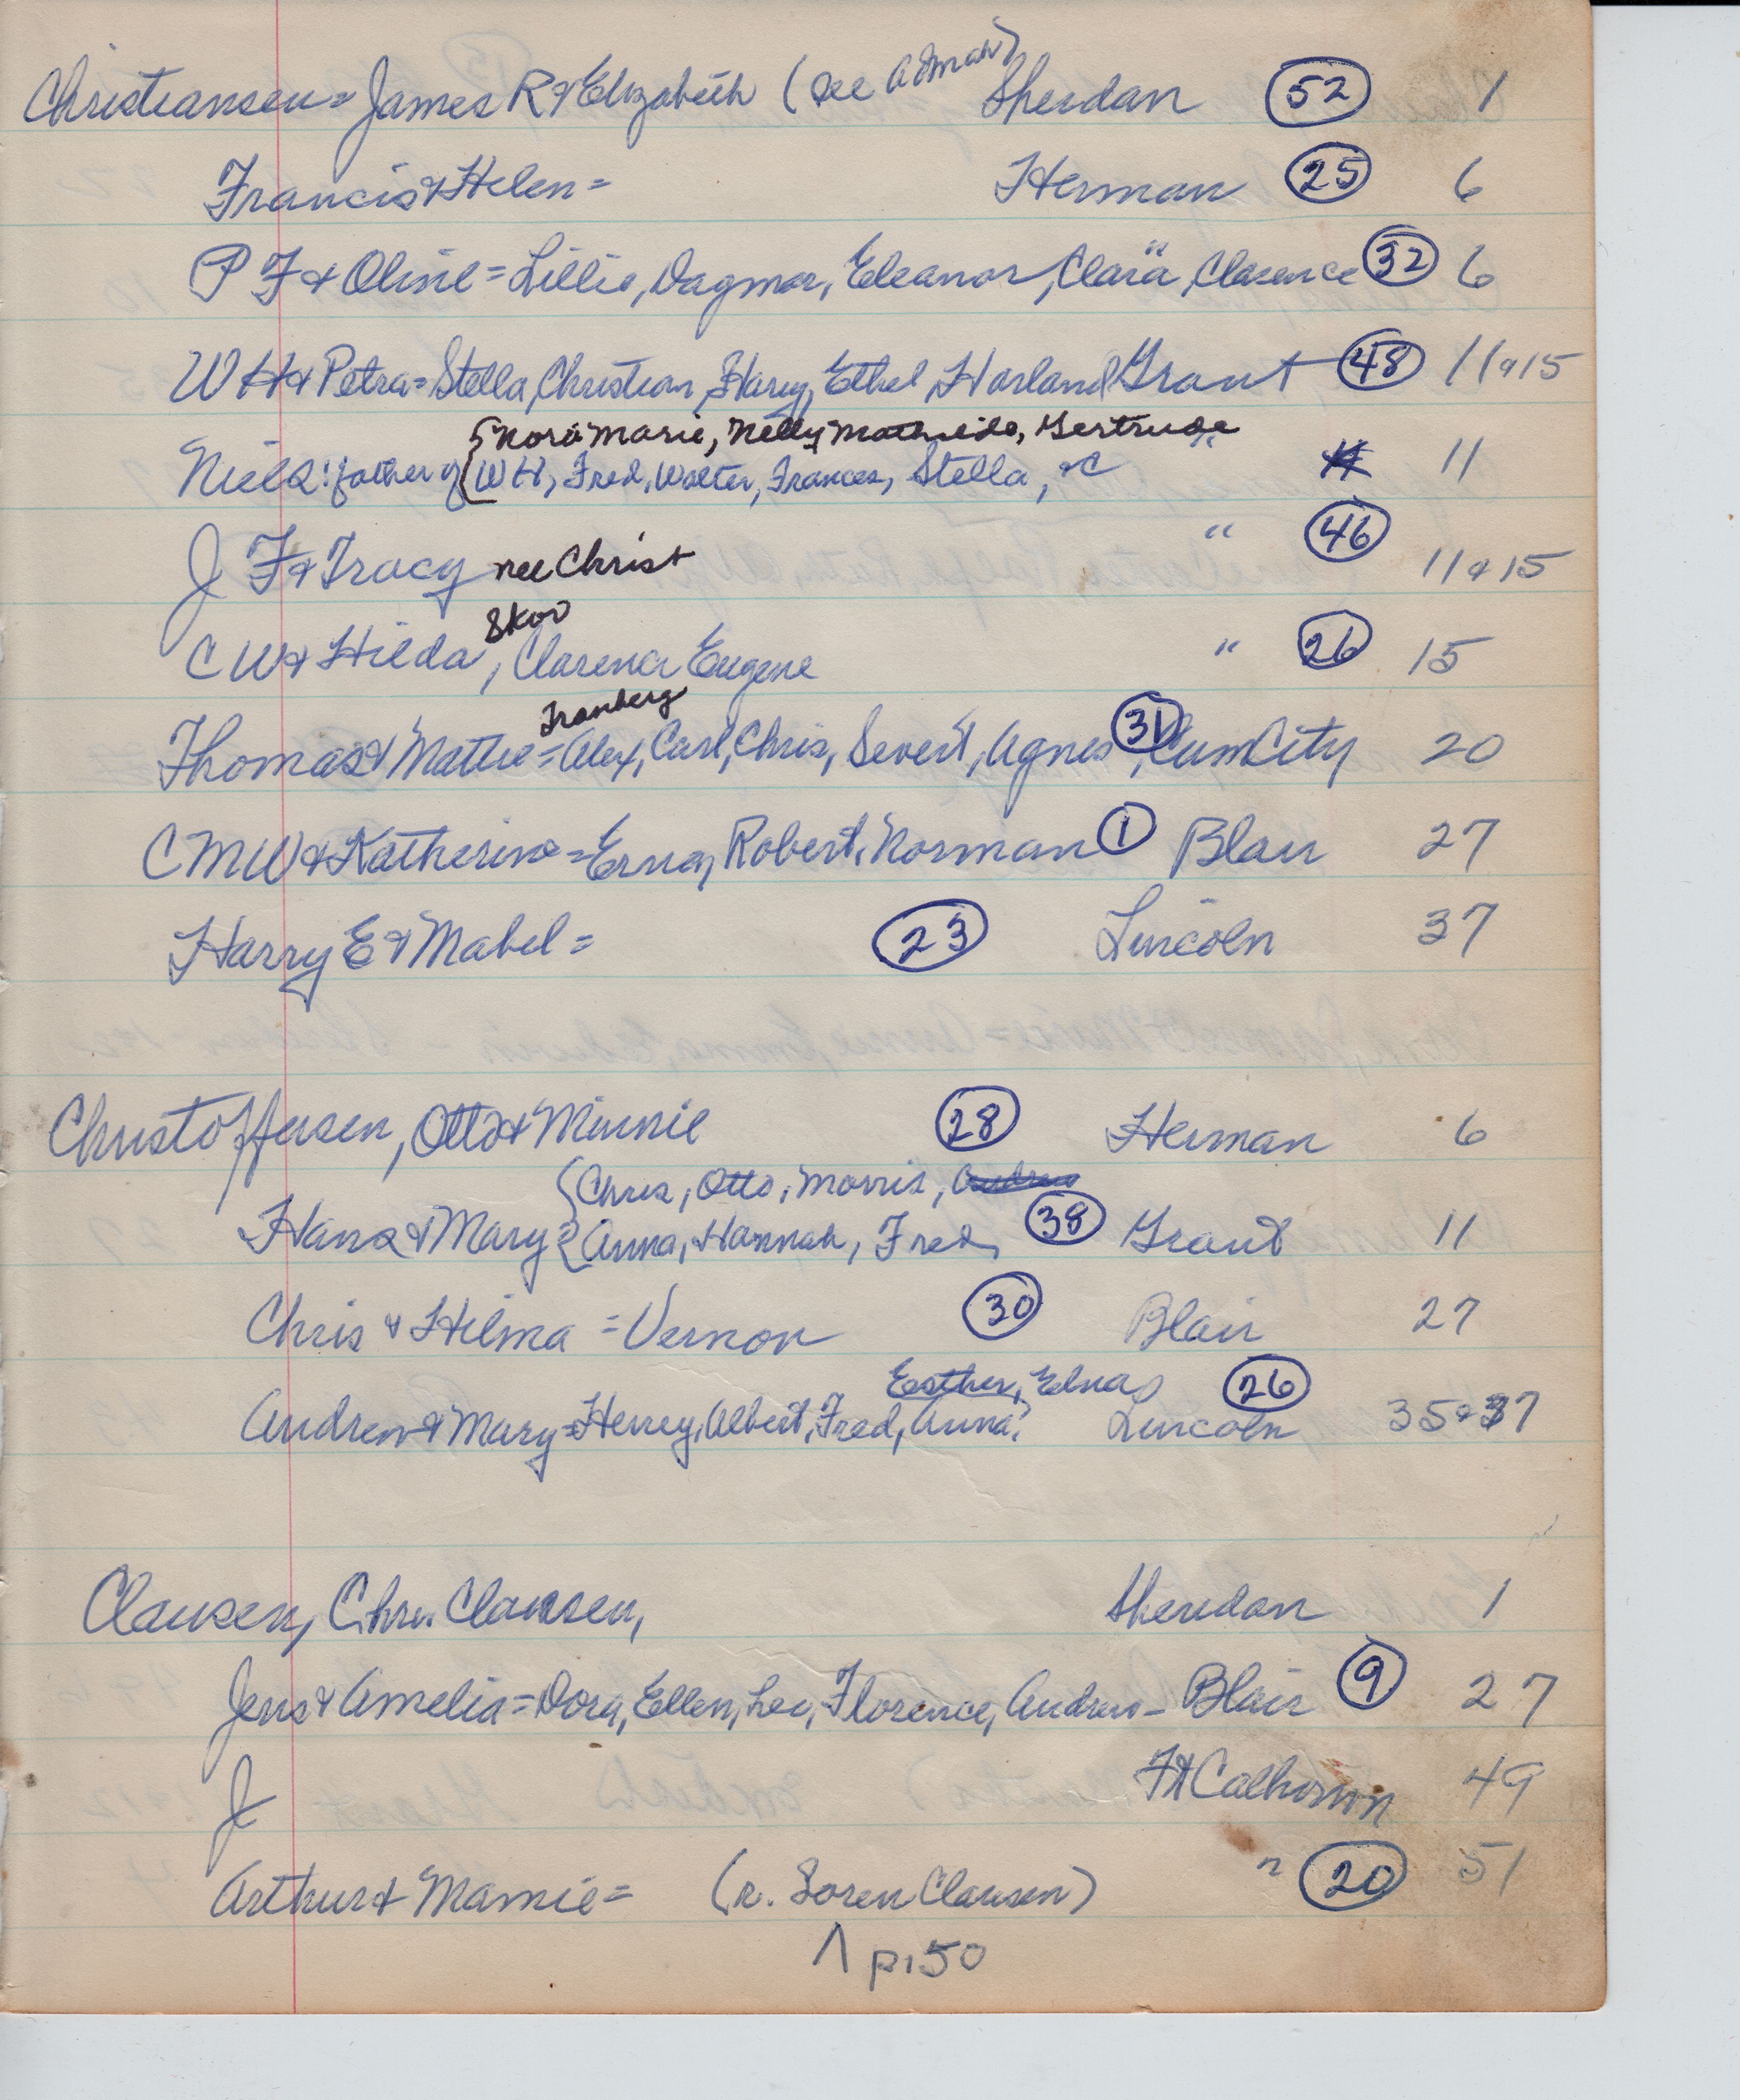 Christiansen = James R & Elizabeth (see Adman) Sheridan 52 1
Francis & Helen = Herman 25 6
P F & Oline = Lillie, Dagmar, Eleanor, Clara, Clarence 32 " 6
W H & Petra = Stella, Christian, Harry, Ethel, Harland Grant 48 11 & 15
{ Nora Marie, Nelly Mathilda, Gertrude
Niels: father of { W H, Fred, Walter, Frances, Stella, &c " 11
J F & Tracy nee Christ " 46 11 & 15
Skov
C W & Hilda, Clarence Eugene " 26 15
Tranberg
Thomas & Mattie = Alex, Carl, Chris, Severt, Agnes 31, Cum City 20
C M W & Katherine = Erna, Robert, Norman 1 Blair 27
Harry E & Mabel = 23 Lincoln 37
Christoffersen, Otto & Minnie 28 Herman 6
{ Chris, Otto, Morris, Andrew
Hans & Mary = { Anna, Hannah, Fred, 38 Grant 11
Chris & Hilma = Vernon 30 Blair 27
Esther, Edna, 26
Andrew & Mary = Henry, Albert, Fred, Anna, Lincoln 35 & 37
Clausen, Chr. Clausen, Sheridan 1
Jens & Amelia = Dora, Ellen, Leo, Florence, Andrew - Blair 9 27
J Ft Calhoun 49
Arthur & Mamie = (r. Soren Clausen) " 20 51
^ p. 50